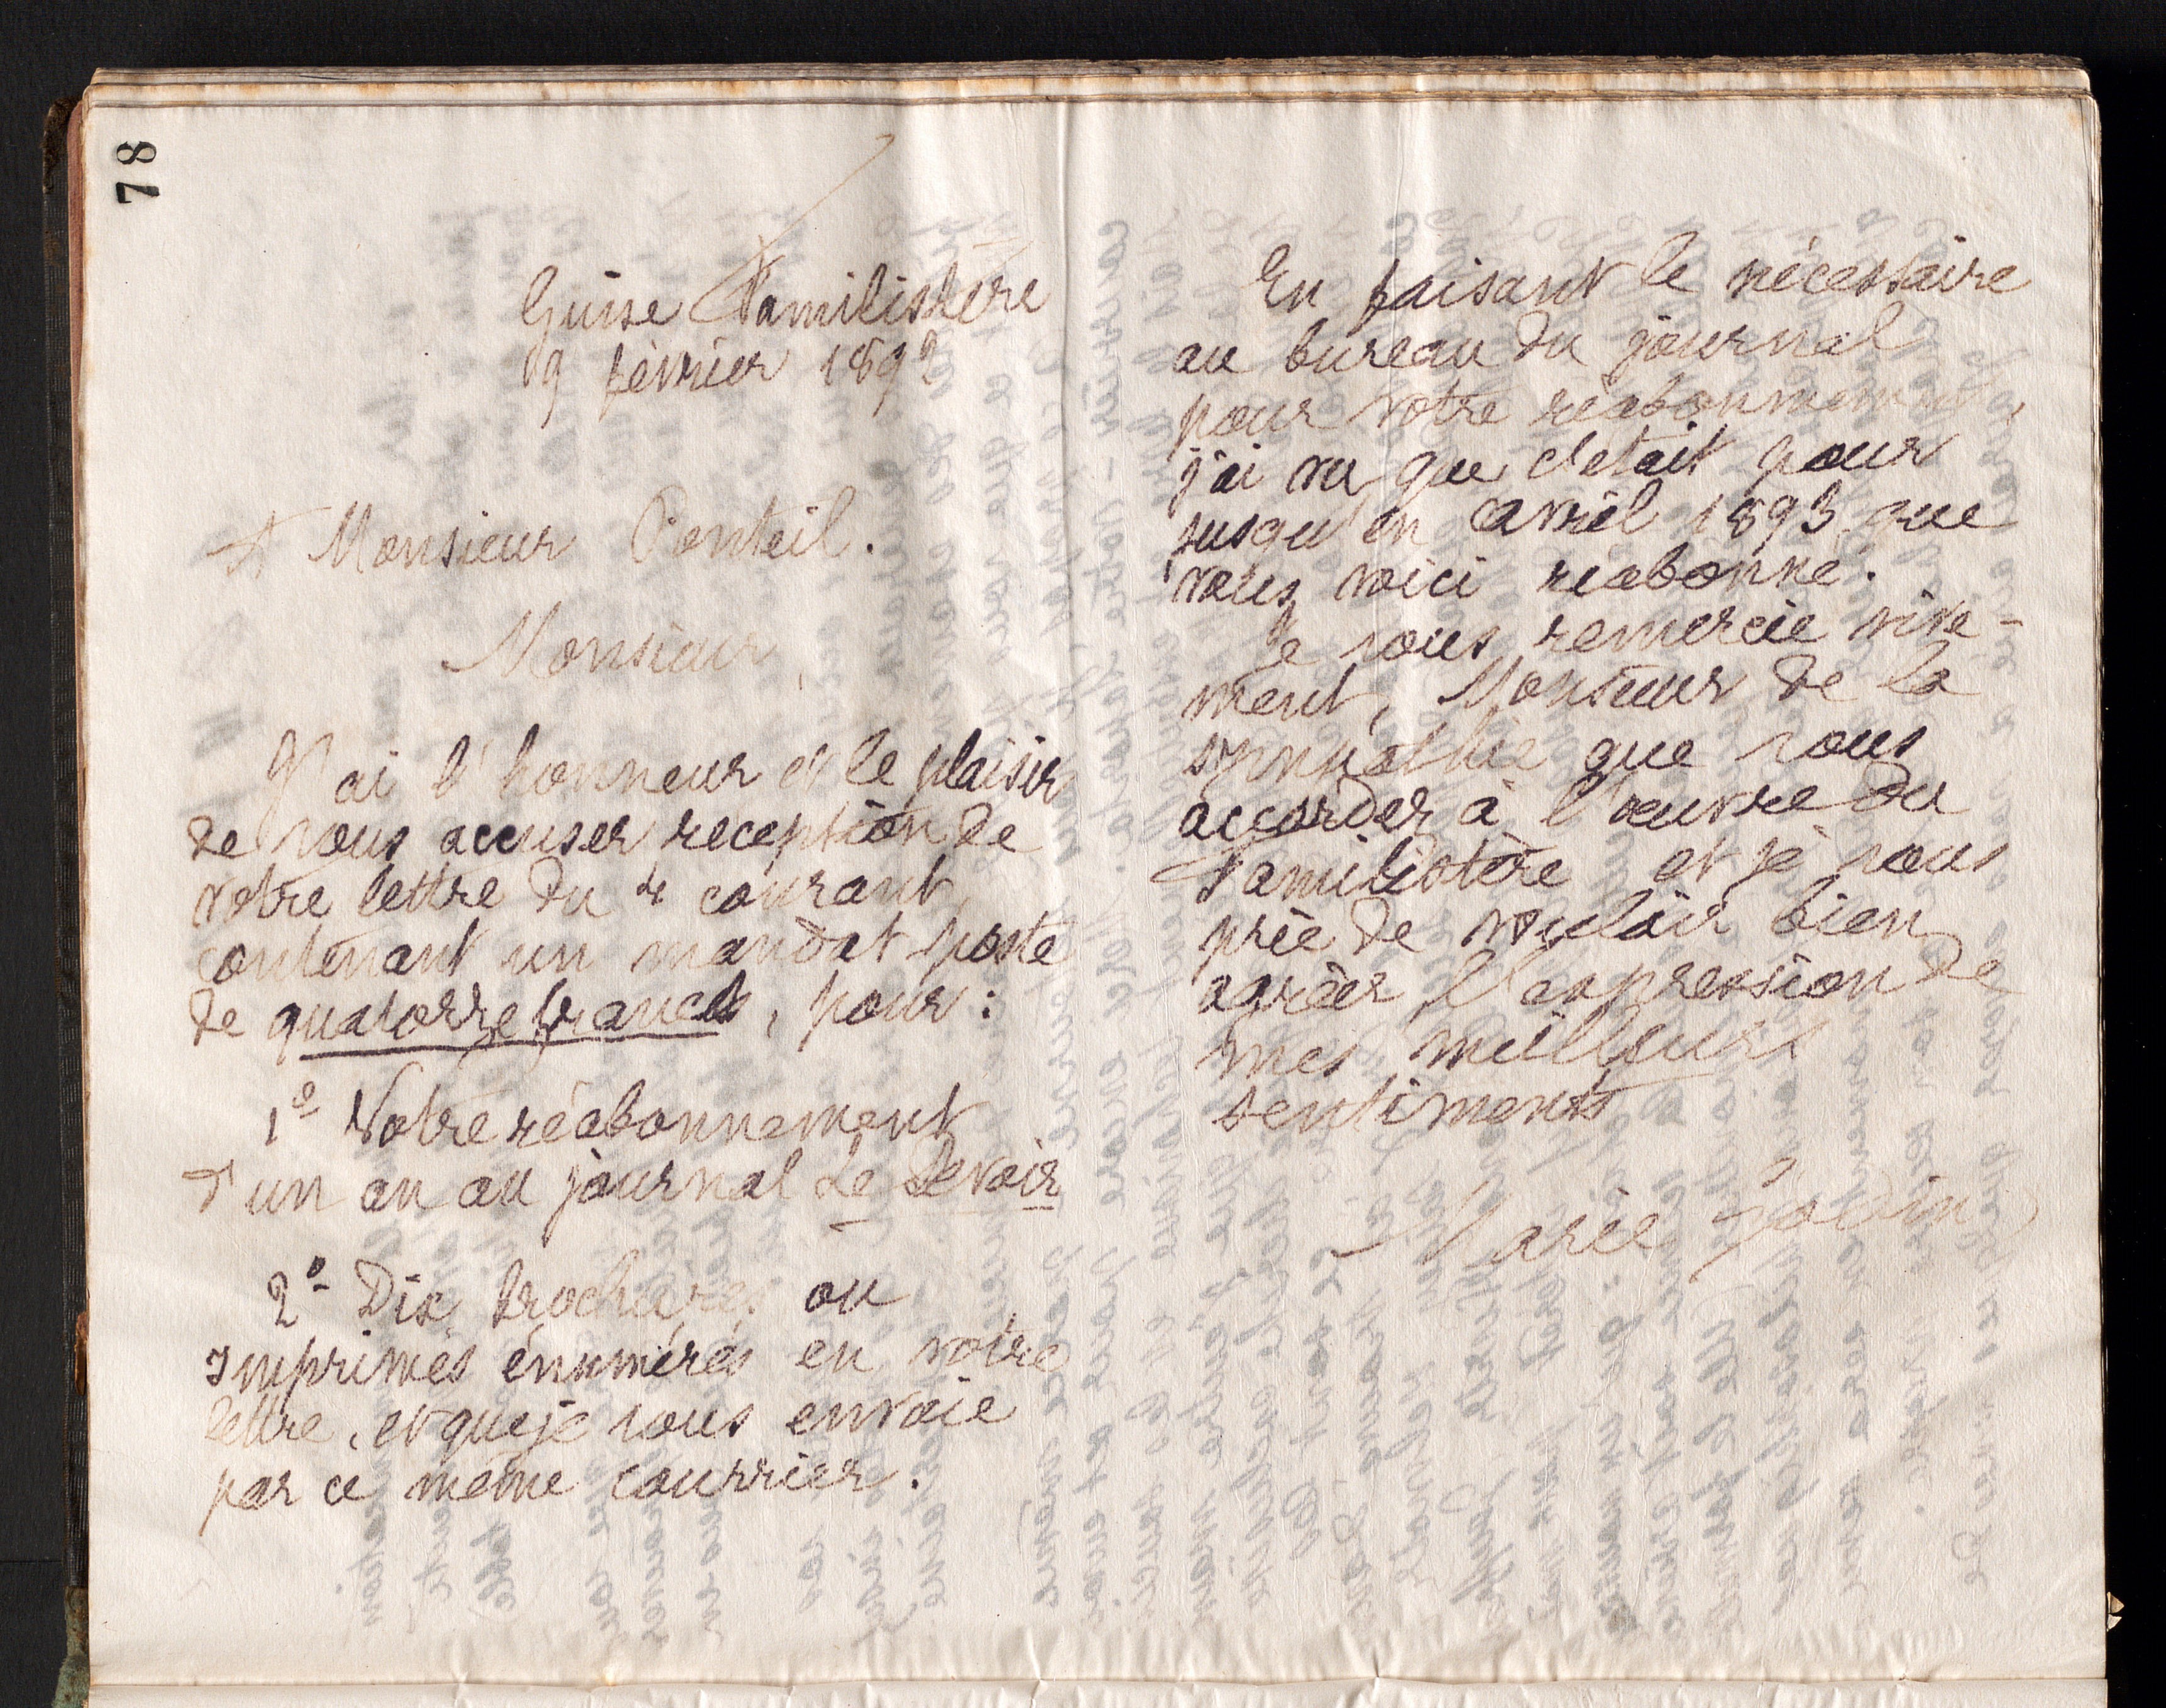 78
Guise Familistère
9 février 1892
A Monsieur Ponteil.
Monsieur,
J'ai l'honneur et le plaisir
de vous accuser reception de
votre lettre du 4 courant,
contenant un mandat poste
de quatorze francs, pour :
1º Votre réabonnement
d'un an au journal Le Devoir
2º Dix brochures ou
imprimés énumérés en votre
lettre, et que je vous envoie
par ce même courrier.
En faisant le nécessaire
au bureau du journal
pour votre réabonnement,
j'ai vu que c'était pour
jusqu'en avril 1893 que
vous voici réabonné.
Je vous remercie vive-
ment, Monsieur de la
sympathie que vous
accordez à l'œuvre du
Familistère et je vous
prie de vouloir bien
agréer l'expression de
mes meilleurs
sentiments
Marie Godin